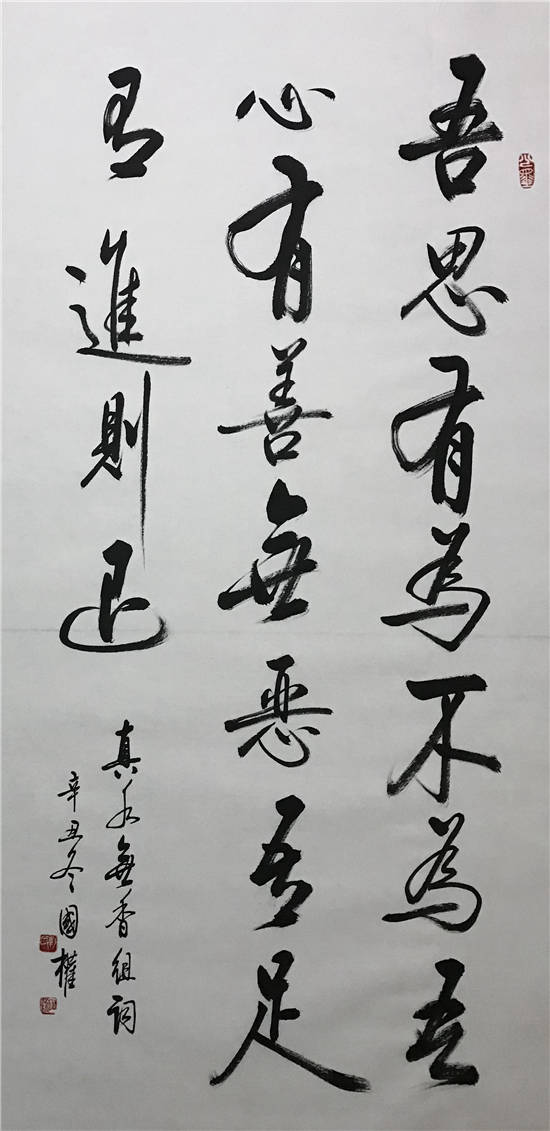 吾思有為不為吾
心有善無惡吾足
有進則退
真水無香組詞
辛丑冬國權